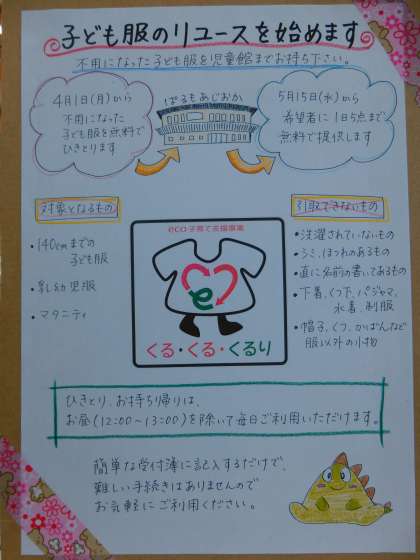 子ども服のリユースを始めます
不用になった子ども服を児童館までお持ち下さい。
4月1日(月)から
不用になった
子ども服を無料で
ひきとります
ぱるもあじおか
5月15日(水)から
希望者に1日5点まで
無料で提供します
対象となるもの
・140cmまでの
子ども服
・乳幼児服
・マタニティ
eco子育て支援事業
e
くる・くる・くるり
引取できないもの
・洗濯されていないもの
・シミ、ほつれのあるもの
・直に名前の書いてあるもの
・下着、くつ下、パジャマ、
水着、制服
・帽子、くつ、かばんなど
服以外の小物
ひきとり、お持ち帰りは、
お昼(12:00~13:00)を除いて毎日ご利用いただけます。
簡単な受付簿に記入するだけで、
難しい手続きはありませんので
お気軽にご利用ください。